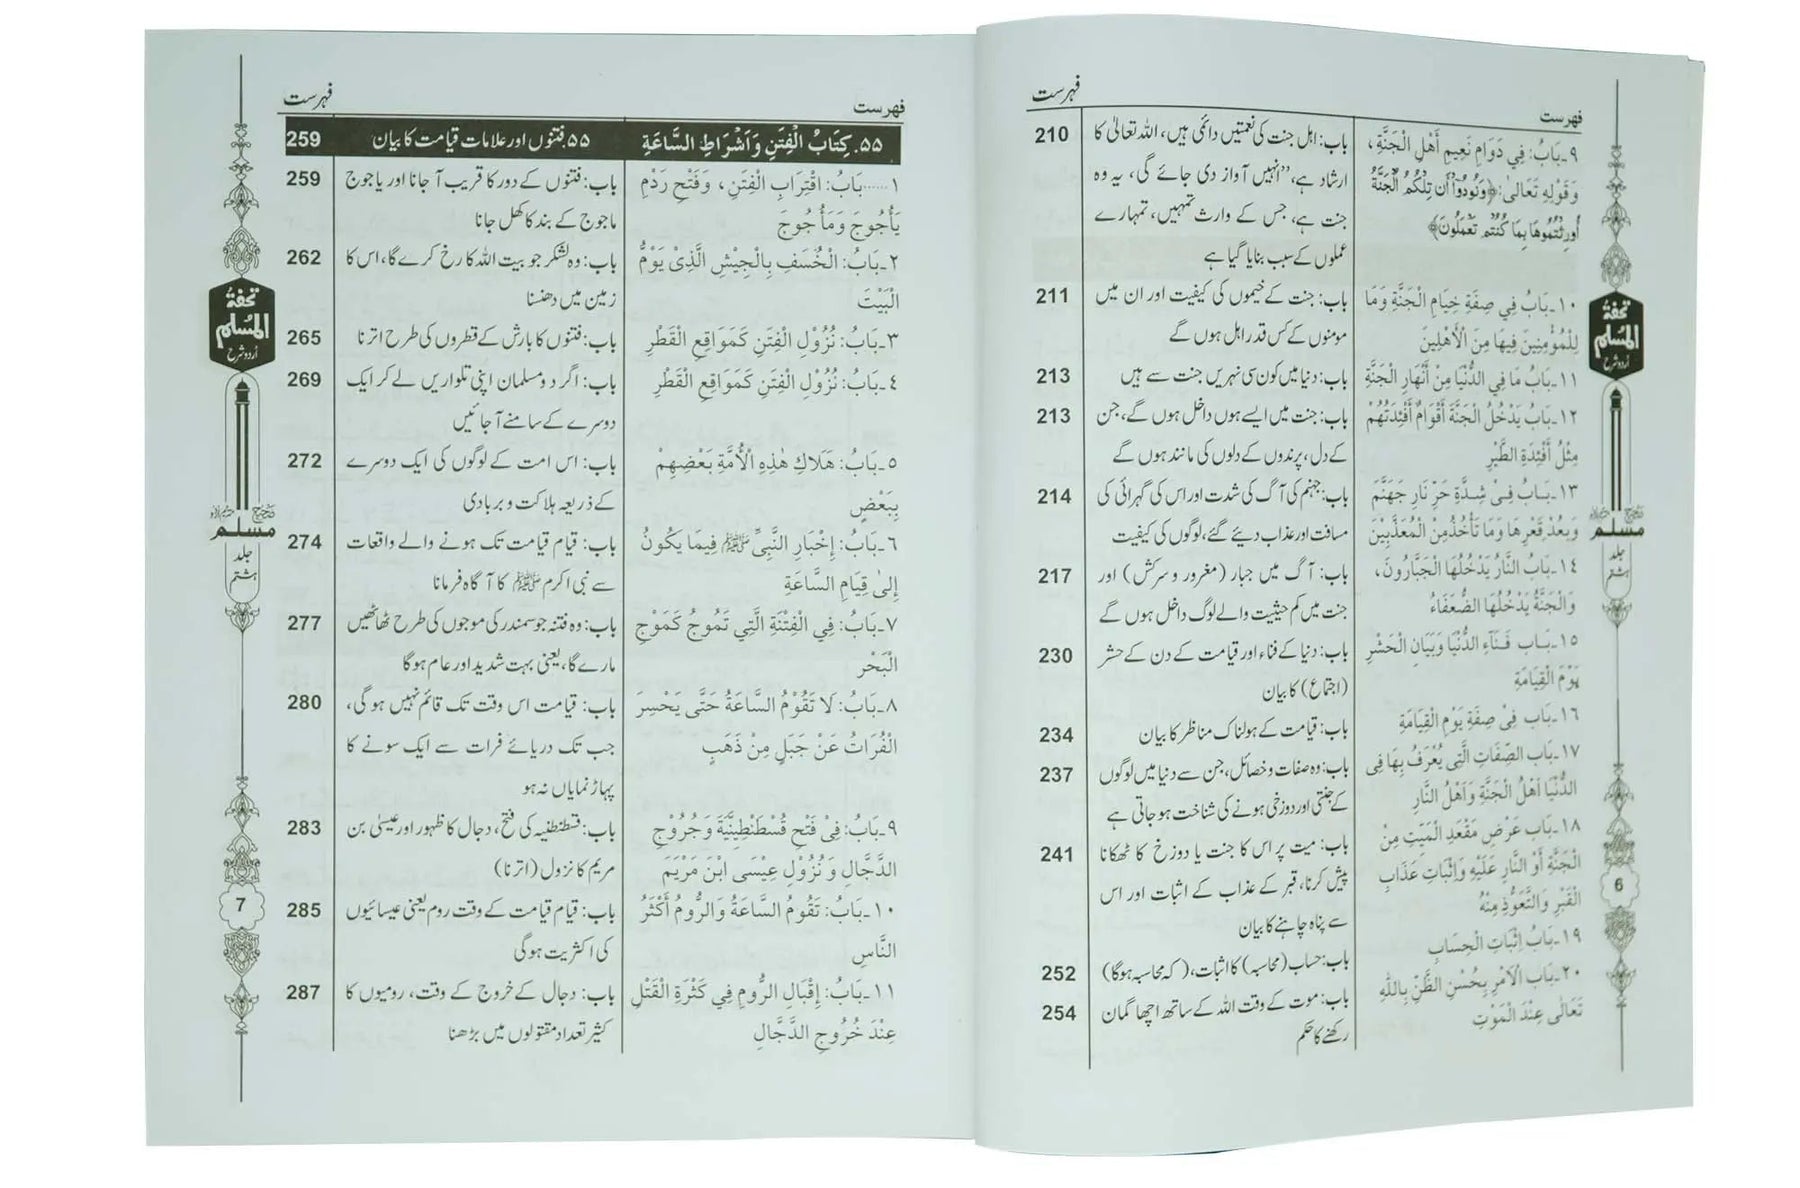 فهرست
فہرست
٩۔بَابُ: فِي دَوَامِ نَعِيمِ أَهْلِ الْجَنَّةِ،
وَقَوْلِهِ تَعَالىٰ:﴿وَنُودُواْ أَن تِلْكُمُ الْجَنَّةُ
أُورِثْتُمُوهَا بِمَا كُنتُمْ تَعْمَلُونَ﴾
باب: اہل جنت کی نعمتیں دائمی ہیں، اللہ تعالیٰ کا
210
ارشاد ہے،‘‘انہیں آواز دی جائے گی، یہ وہ
جنت ہے، جس کے وارث تمہیں، تمہارے
عملوں کے سبب بنایا گیا ہے
١٠۔بَابُ فِي صِفَةِ خِيَامِ الْجَنَّةِ وَمَا
لِلْمُؤْمِنِينَ فِيهَا مِنَ الْأَهْلِينَ
باب: جنت کے خیموں کی کیفیت اور ان میں
211
مومنوں کے کس قدر اہل ہوں گے
١١۔بَابُ مَا فِي الدُّنْيَا مِنْ أَنْهَارِ الْجَنَّةِ
باب: دنیا میں کون سی نہریں جنت سے ہیں
213
١٢۔بَابُ يَدْخُلُ الْجَنَّةَ أَقْوَامٌ أَفْئِدَتُهُمْ
مِثْلُ أَفْئِدَةِ الطَّيْرِ
باب: جنت میں ایسے ہوں داخل ہوں گے، جن
213
کے دل، پرندوں کے دلوں کی مانند ہوں گے
١٣۔بَابُ فِىْ شِدَّةِ حَرِّ نَارِ جَهَنَّمَ
وَبعُدْ قَعْرِهَا وَمَا تَأْخُذُمِنْ الْمُعَذَّبِيْنَ
باب: جہنم کی آگ کی شدت اور اس کی گہرائی کی
214
مسافت اور عذاب دیئے گئے، لوگوں کی کیفیت
١٤۔بَابُ النَّارُ يَدْخُلُهَا الْجَبَّارُونَ،
وَالْجَنَّةُ يَدْخُلُهَا الضُّعَفَاءُ
باب: آگ میں جبار (مغرور و سرکش) اور
217
جنت میں کم حیثیت والے لوگ داخل ہوں گے
١٥۔بَاب فَنَاءِ الدُّنْيَا وَبَيَانِ الْحَشْرِ
يَوْمَ الْقِيَامَةِ
باب: دنیا کے فناء اور قیامت کے دن کے حشر
230
(اجتماع) کا بیان
١٦۔بَاب فِىْ صِفَةِ يَوْمِ الْقِيَامَةِ
باب: قیامت کے ہولناک مناظر کا بیان
234
١٧۔بَاب الصِّفَاتِ الَّتِى يُعْرَفُ بِهَا فِى
الدُّنْيَا اَهْلُ الْجَنَّةِ وَاَهْلُ النَّارِ
باب: وہ صفات و خصائل، جن سے دنیا میں لوگوں
237
کے جنتی اور دوزخی ہونے کی شناخت ہو جاتی ہے
١٨۔بَاب عَرْضِ مَقْعَدِ الْمَيِّتِ مِنْ
الْجَنَّةِ أَوْ النَّارِ عَلَيْهِ وَإِثْبَاتِ عَذَابِ
الْقَبْرِ وَالتَّعَوُّذِ مِنْهُ
باب: میت پر اس کا جنت یا دوزخ کا ٹھکانا
241
پیش کرنا، قبر کے عذاب کے اثبات اور اس
سے پناہ چاہنے کا بیان
١٩۔بَابُ اِثْبَاتِ الْحِسَابِ
باب: حساب (محاسبہ) کا اثبات، (کہ محاسبہ ہوگا)
252
٢٠۔بَاب الْاَمْرِ بِحُسْنِ الظَّنِّ بِاللّٰهِ
تَعَالٰى عِنْدَ الْمَوْتِ
باب: موت کے وقت اللہ کے ساتھ اچھا گمان
254
رکھنے کا حکم
تحفۃ
المُسلم
اُردو شرح
صحیح
مسلم
جلد
ہشتم
6
فهرست
فہرست
٥٥. كِتَابُ الْفِتَنِ وَأَشْرَاطِ السَّاعَةِ
٥٥. فتنوں اور علامات قیامت کا بیان
259
١.....بَابُ: اقْتِرَابِ الْفِتَنِ، وَفَتْحِ رَدْمِ
يَأْجُوجَ وَمَأْجُوجَ
باب: فتنوں کے دور کا قریب آ جانا اور یاجوج
259
ماجوج کے بند کا کھل جانا
٢۔بَابُ: الْخُسَفِ بِالْجِيْشِ الَّذِىْ يَوْمُّ
الْبَيْتَ
باب: وہ لشکر جو بیت اللہ کا رخ کرے گا، اس کا
262
زمین میں دھنسنا
٣۔بَابُ: نُزُوْلِ الْفِتَنِ كَمَوَاقِعِ الْقَطْرِ
باب: فتنوں کا بارش کے قطروں کی طرح اترنا
265
٤۔بَابُ: نُزُوْلِ الْفِتَنِ كَمَوَاقِعِ الْقَطْرِ
باب: اگر دو مسلمان اپنی تلواریں لے کر ایک
269
دوسرے کے سامنے آ جائیں
٥۔بَابُ: هَلَاكِ هٰذِهِ الْأُمَّةِ بَعْضِهِمْ
بِبَعْضٍ
باب: اس امت کے لوگوں کی ایک دوسرے
272
کے ذریعہ ہلاکت و بربادی
٦۔بَابُ: إِخْبَارِ النَّبِيِّ ﷺ فِيمَا يَكُونُ
إِلىٰ قِيَامِ السَّاعَةِ
باب: قیام قیامت تک ہونے والے واقعات
274
سے نبی اکرم ﷺ کا آگاہ فرمانا
٧۔بَابُ: فِي الْفِتْنَةِ الَّتِي تَمُوجُ كَمَوْجِ
الْبَحْرِ
باب: وہ فتنہ جو سمندر کی موجوں کی طرح ٹھاٹھیں
277
مارے گا، یعنی بہت شدید اور عام ہوگا
٨۔بَابُ: لَا تَقُوْمُ السَّاعَةُ حَتَّى يَحْسِرَ
الْفُرَاتُ عَنْ جَبَلٍ مِنْ ذَهَبٍ
باب: قیامت اس وقت تک قائم نہیں ہو گی،
280
جب تک دریائے فرات سے ایک سونے کا
پہاڑ نمایاں نہ ہو
٩۔بَابُ: فِىْ فَتْحِ قُسْطَنْطِينِيَّةَ وَخُرُوْجِ
الدَّجَّالِ وَنُزُوْلِ عِيْسَى ابْنِ مَرْيَمَ
باب: قسطنطنیہ کی فتح، دجال کا ظہور اور عیسیٰ بن
283
مریم کا نزول (اترنا)
١٠۔بَابُ: تَقُومُ السَّاعَةُ وَالرُّومُ أَكْثَرُ
النَّاسِ
باب: قیام قیامت کے وقت روم یعنی عیسائیوں
285
کی اکثریت ہوگی
١١۔بَابُ: إِقْبَالِ الرُّومِ فِي كَثْرَةِ الْقَتْلِ
عِنْدَ خُرُوجِ الدَّجَّالِ
باب: دجال کے خروج کے وقت، رومیوں کا
287
کثیر تعداد مقتولوں میں بڑھنا
تحفۃ
المُسلم
اُردو شرح
صحیح
مسلم
جلد
ہشتم
7